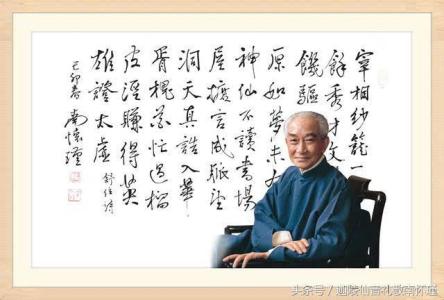 宰相紗籠一
餘秀才文
饑驅
原如夢未
神仙不讀書場
屋摭言成脈望
洞天真誥入華
胥槐花忙過榴
皮溼賺得英
雄證太虛 舒位詩
己卯春 南懷瑾
头条号 / 迦陵仙音礼敬南怀瑾